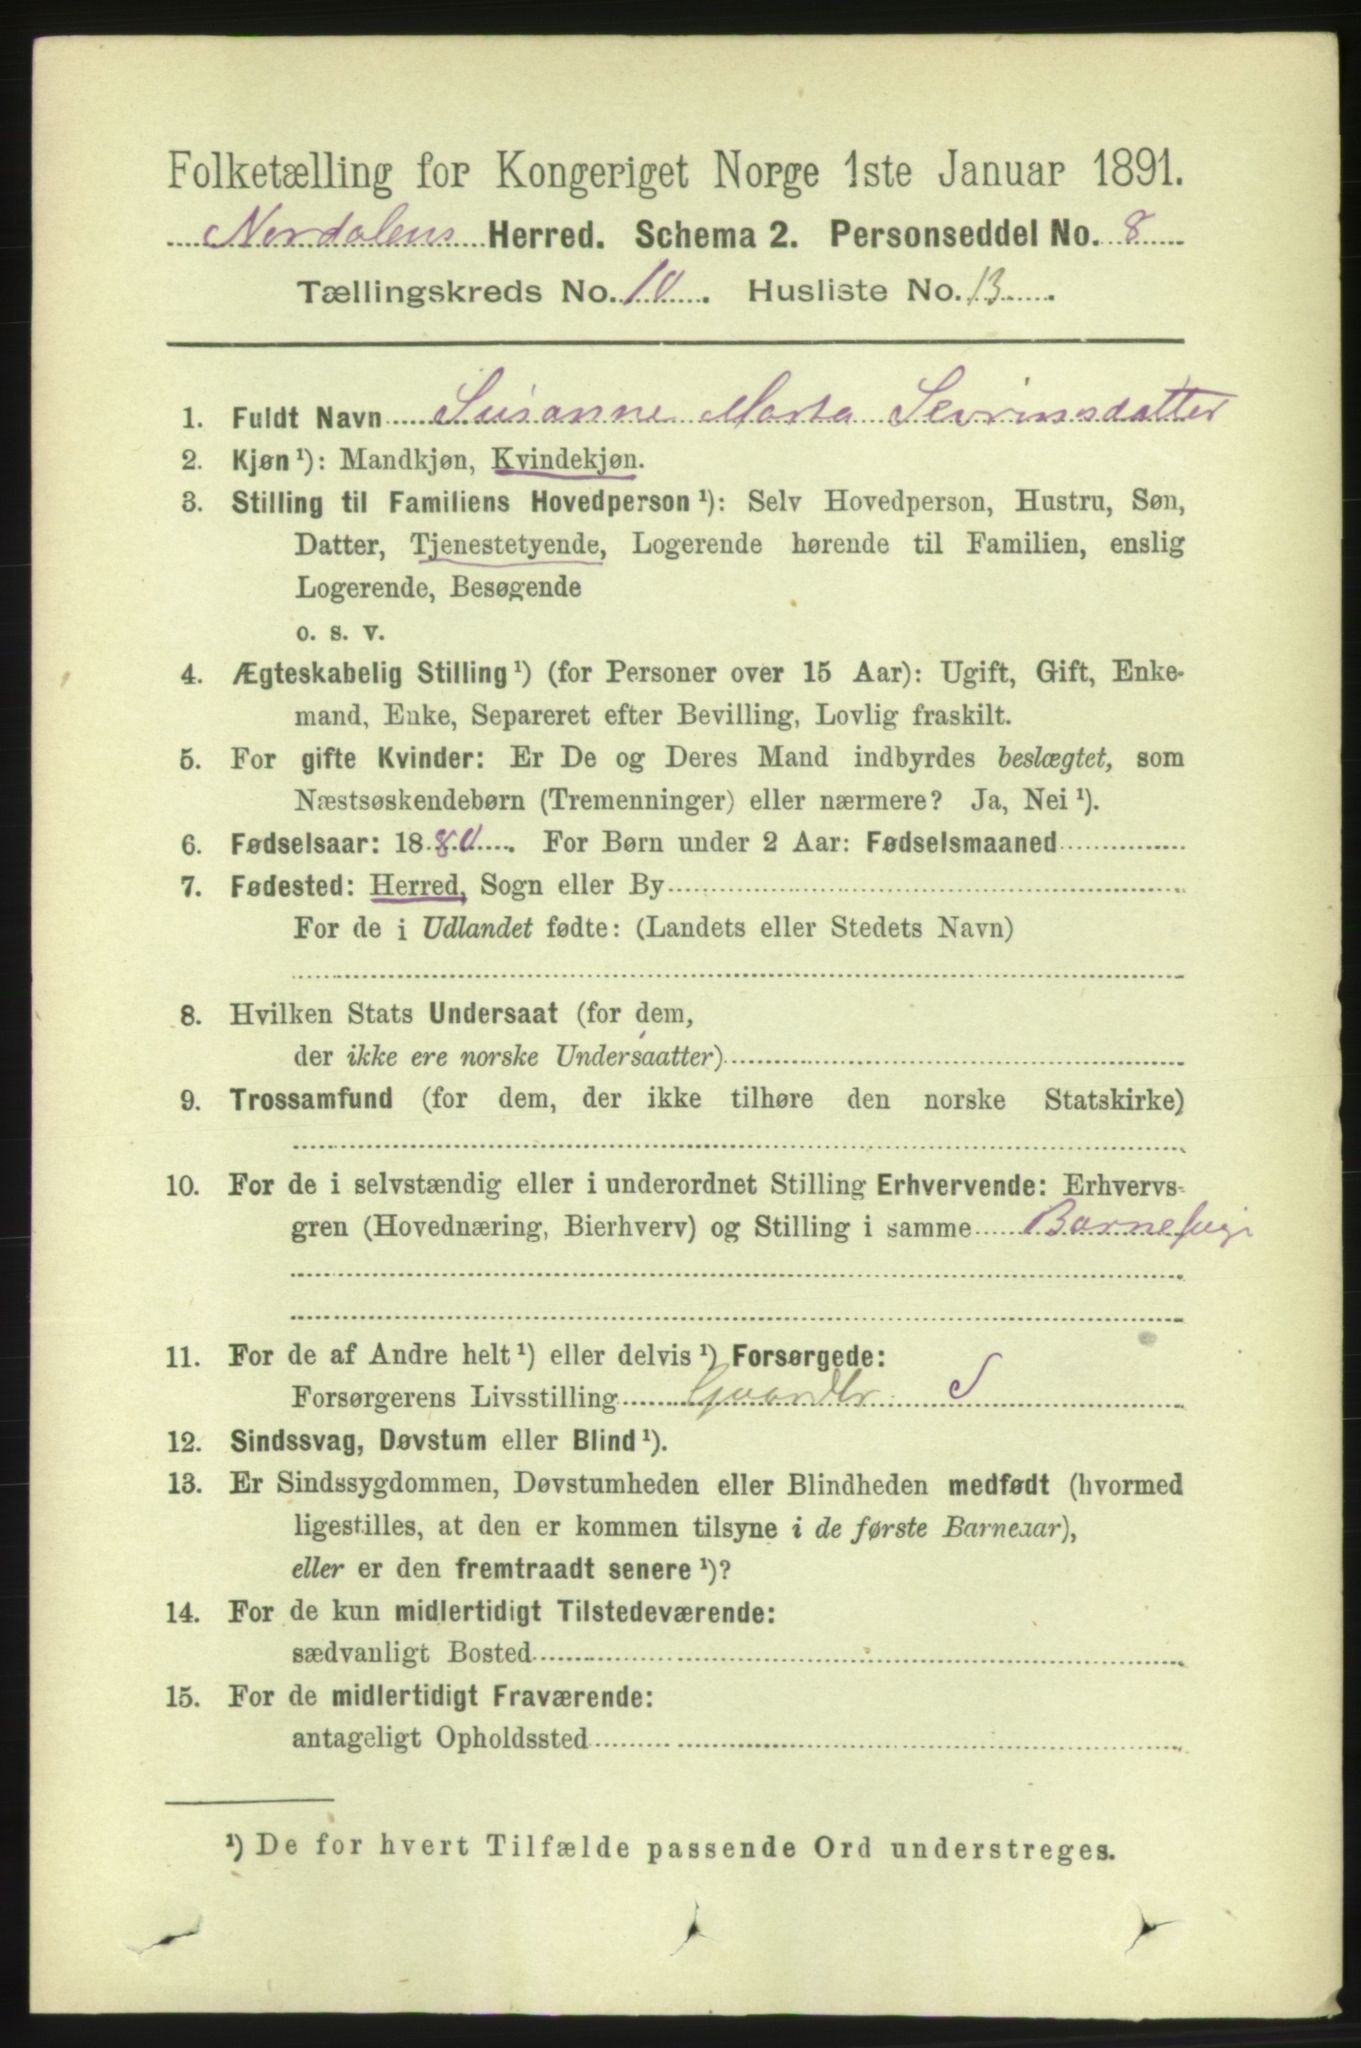 Folketælling for Kongeriget Norge 1ste Januar 1891.
Nordalens Herred. Schema 2. Personseddel No. 8
Tællingskreds No. 10. Husliste No. 13.
1. Fuldt Navn Susanne Marta Sevrinsdatter
2. Kjøn ¹): Mandkjøn, Kvindekjøn.
3. Stilling til Familiens Hovedperson ¹): Selv Hovedperson, Hustru, Søn,
Datter, Tjenestetyende, Logerende hørende til Familien, enslig
Logerende, Besøgende
o. s. v.
4. Ægteskabelig Stilling ¹) (for Personer over 15 Aar): Ugift, Gift, Enke-
mand, Enke, Separeret efter Bevilling, Lovlig fraskilt.
5. For gifte Kvinder: Er De og Deres Mand indbyrdes beslægtet, som
Næstsøskendebørn (Tremenninger) eller nærmere? Ja, Nei ¹).
6. Fødselsaar: 1880. For Børn under 2 Aar: Fødselsmaaned
7. Fødested: Herred, Sogn eller By
For de i Udlandet fødte: (Landets eller Stedets Navn)
8. Hvilken Stats Undersaat (for dem,
der ikke ere norske Undersaatter)
9. Trossamfund (for dem, der ikke tilhøre den norske Statskirke)
10. For de i selvstændig eller i underordnet Stilling Erhvervende: Erhvervs-
gren (Hovednæring, Bierhverv) og Stilling i samme
11. For de af Andre helt ¹) eller delvis ¹) Forsørgede:
Forsørgerens Livsstilling S
12. Sindssvag, Døvstum eller Blind ¹).
13. Er Sindssygdommen, Døvstumheden eller Blindheden medfødt (hvormed
ligestilles, at den er kommen tilsyne i de første Barneaar),
eller er den fremtraadt senere ¹)?
14. For de kun midlertidigt Tilstedeværende:
sædvanligt Bosted
15. For de midlertidigt Fraværende:
antageligt Opholdssted
¹) De for hvert Tilfælde passende Ord understreges.